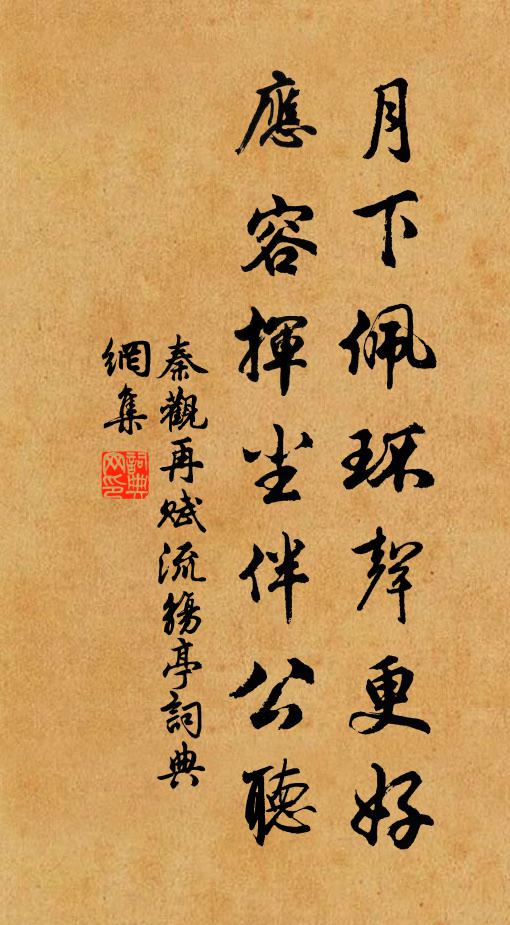 月下佩环聲更好
應容揮尘伴公聽
秦觀再賦流觴亭詞典
網集
詞典
网印